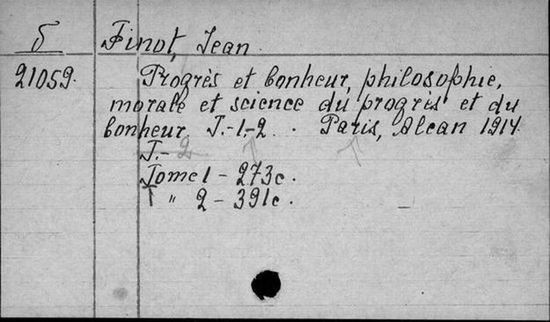 б Finot, Jean
21059. Progrès et bonheur, philosophie,
morale et science du progrès et du
bonheur T.-1-2. Paris, Alcan 1914.
T.-2
Tome 1 - 273c.
" 2 - 391c.